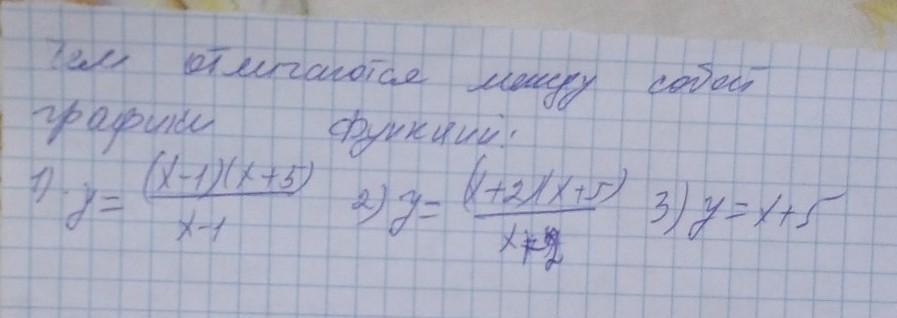 Чем отличаются между собой
графики функций:
1) y = (x-1)(x+5) / x-1 2) y = (x+2)(x+5) / x+2 3) y = x+5